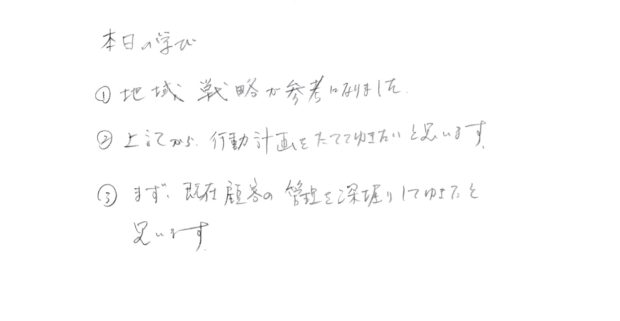 本日の学び
① 地域、戦略が参考になりました。
② 上記から、行動計画をたててゆきたいと思います。
③ まず、既存顧客の管理を深堀りしてゆきたと
思います。